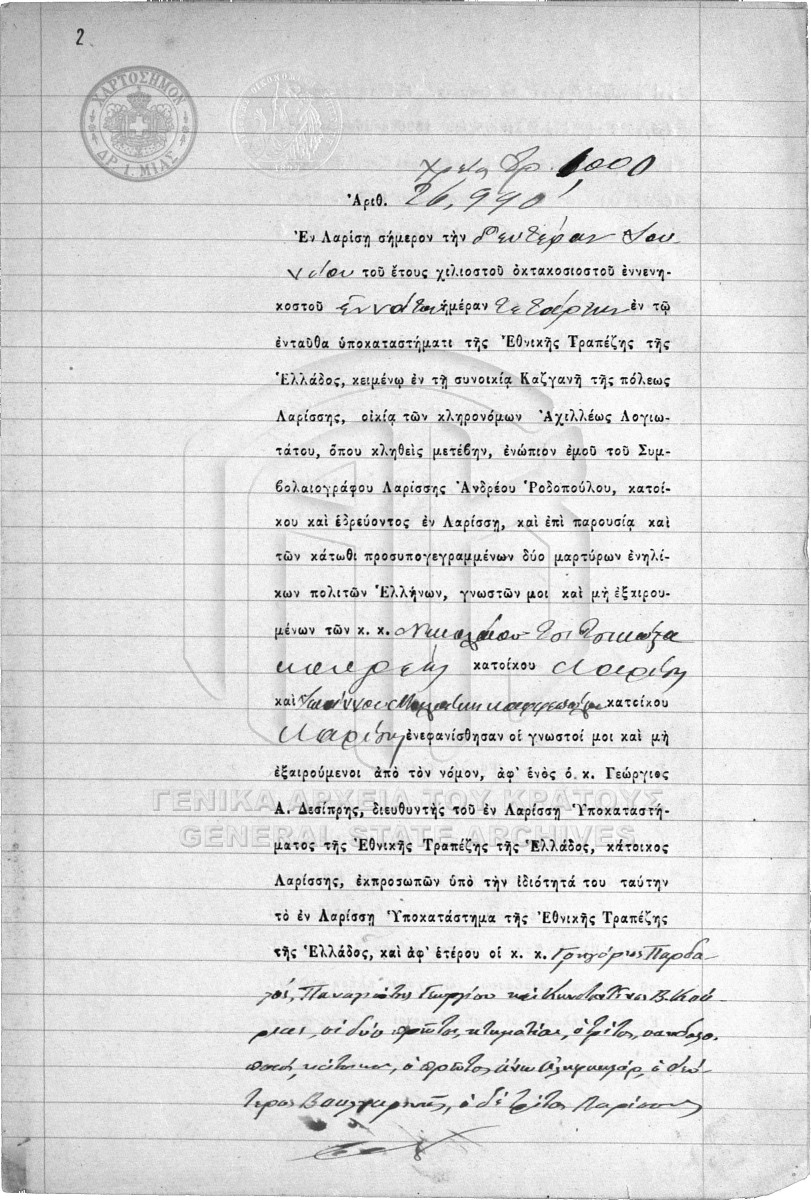 2
ΧΑΡΤΟΣΗΜΟΝ
ΔΡ. 1. ΜΙΑΣ
χρέος Δρ. 1000
Ἀριθ. 26,990
Ἐν Λαρίσῃ σήμερον τὴν δευτέραν Ἰου
νίου τοῦ ἔτους χιλιοστοῦ ὀκτακοσιοστοῦ ἐννενη-
κοστοῦ ἐννάτου ἡμέραν τετάρτην ἐν τῷ
ἐνταῦθα ὑποκαταστήματι τῆς Ἐθνικῆς Τραπέζης τῆς
Ἑλλάδος, κειμένῳ ἐν τῇ συνοικίᾳ Καζγανῆ τῆς πόλεως
Λαρίσσης, οἰκίᾳ τῶν κληρονόμων Ἀχιλλέως Λογιω-
τάτου, ὅπου κληθεὶς μετέβην, ἐνώπιον ἐμοῦ τοῦ Συμ-
βολαιογράφου Λαρίσσης Ἀνδρέου Ῥοδοπούλου, κατοί-
κου καὶ ἑδρεύοντος ἐν Λαρίσσῃ, καὶ ἐπὶ παρουσίᾳ καὶ
τῶν κάτωθι προσυπογεγραμμένων δύο μαρτύρων ἐνηλί-
κων πολιτῶν Ἑλλήνων, γνωστῶν μοι καὶ μὴ ἐξαιρου-
μένων τῶν κ. κ. Νικολάου
κουρέως κατοίκου Λαρίσης
καὶ Ἰωάννου καφφεπώλου κατοίκου
Λαρίσης ἐνεφανίσθησαν οἱ γνωστοί μοι καὶ μὴ
ἐξαιρούμενοι ἀπὸ τὸν νόμον, ἀφ' ἑνὸς ὁ κ. Γεώργιος
Α. Δεσίπρης, διευθυντὴς τοῦ ἐν Λαρίσσῃ Ὑποκαταστή-
ματος τῆς Ἐθνικῆς Τραπέζης τῆς Ἑλλάδος, κάτοικος
Λαρίσσης, ἐκπροσωπῶν ὑπὸ τὴν ἰδιότητά του ταύτην
τὸ ἐν Λαρίσσῃ Ὑποκατάστημα τῆς Ἐθνικῆς Τραπέζης
τῆς Ἑλλάδος, καὶ ἀφ' ἑτέρου οἱ κ. κ. Γρηγόριος Παρδα-
λός, Παναγιώτης Γεωργίου καὶ Κωνσταντῖνος Β.
οἱ δύο πρῶτοι κτηματίαι, ὁ τρίτος
κάτοικοι, ὁ πρῶτος ἄνω ὁ δεύ-
τερος ὁ δὲ τρίτος Λαρίσσης
ΓΕΝΙΚΑ ΑΡΧΕΙΑ ΤΟΥ ΚΡΑΤΟΥΣ
GENERAL STATE ARCHIVES